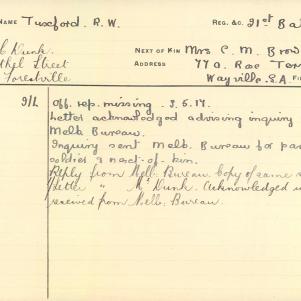 NAME Tuxford. R. W. REG. &C. 21st Ba
Dunk. NEXT OF KIN Mrs C. M. Brow
Street ADDRESS 77a. Rose Ter
Forestville Wayville. S.A.
Off. rep. missing. 3.5.17.
Letter acknowledged advising inquiry
Melb Bureau.
Inquiry sent Melb. Bureau for par
soldier & next-of-kin.
Reply from Melb: Bureau. Copy of same
Letter " Mr Dunk. Acknowledged
received from Melb: Bureau.